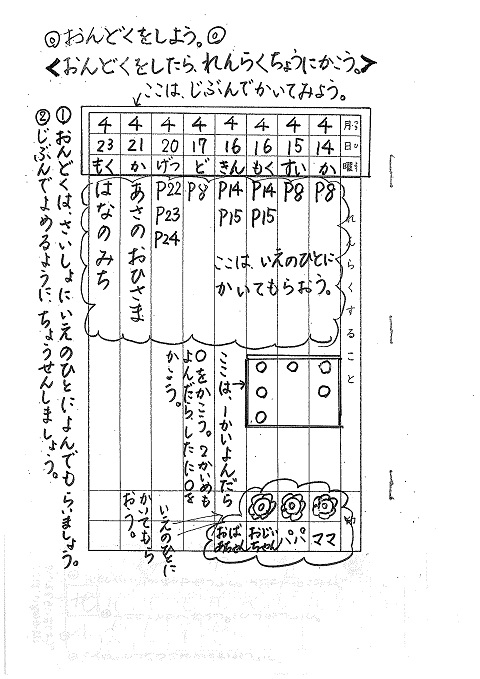 ◎おんどくをしよう。◎
<おんどくをしたら、れんらくちょうにかこう。>
ここは、じぶんでかいてみよう。
月 4 4 4 4 4 4 4 4
日 14 15 16 16 17 20 21 23
曜 か すい もく きん ど げつ か もく
れんらくすること
P8
P8
P14
P15
P14
P15
P8
P22
P23
P24
あさのおひさま
はなのみち
ここは、いえのひとに
かいてもらおう。
ここは、1かいよんだら
○をかこう。2かいめも
よんだら、したに○を
かこう。
○ ○ ○
○ ○
○
印
ママ
パパ
おじいちゃん
おばあちゃん
いえのひとに
かいてもら
おう。
①おんどくは、さいしょにいえのひとによんでもらいましょう。
②じぶんでよめるように、ちょうせんしましょう。